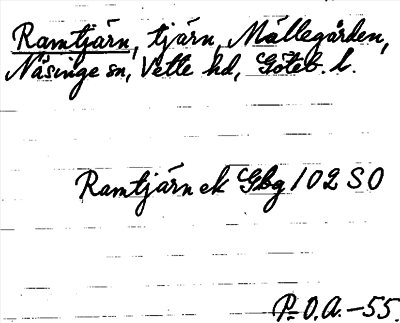 Ramtjärn, tjärn, Mällegården,
Näsinge sn, Vette hd, Göteb. l.
Ramtjärn ek Gbg 102 SO
P.O.A.-55.